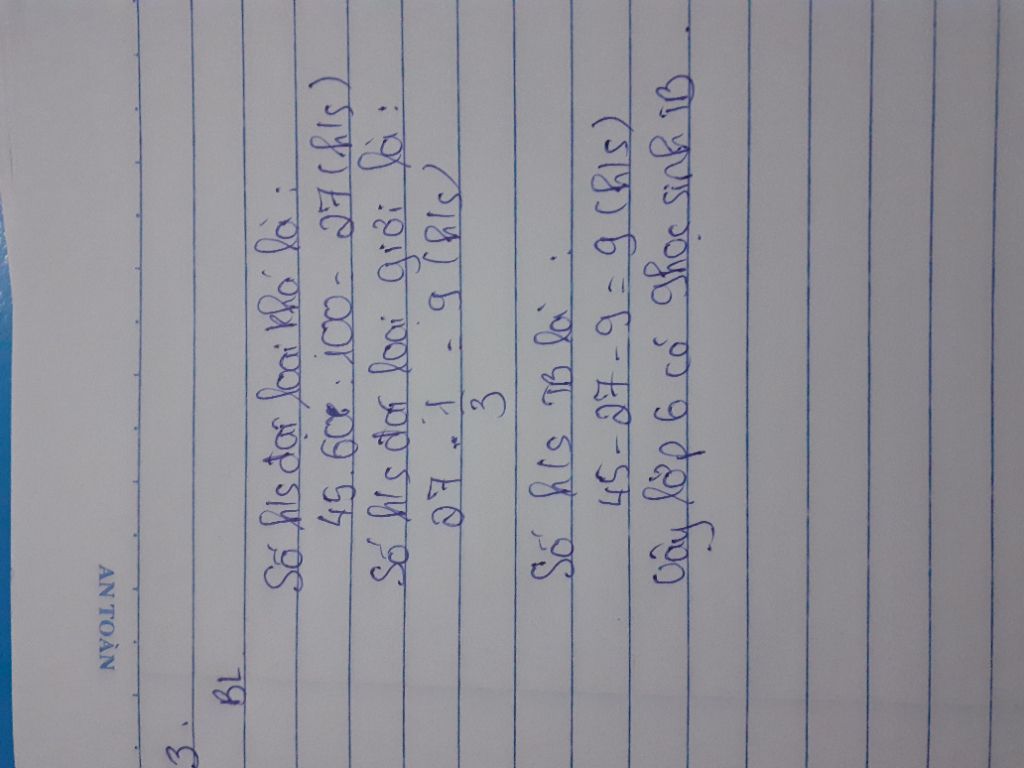 AN TOÀN
3.
BL
Số h/s đạt loại khá là:
45.60 : 100 = 27 (h/s)
Số h/s đạt loại giỏi là:
27 . 1/3 = 9 (h/s)
Số h/s TB là:
45 - 27 - 9 = 9 (h/s)
Vậy lớp 6 có 9 học sinh TB.